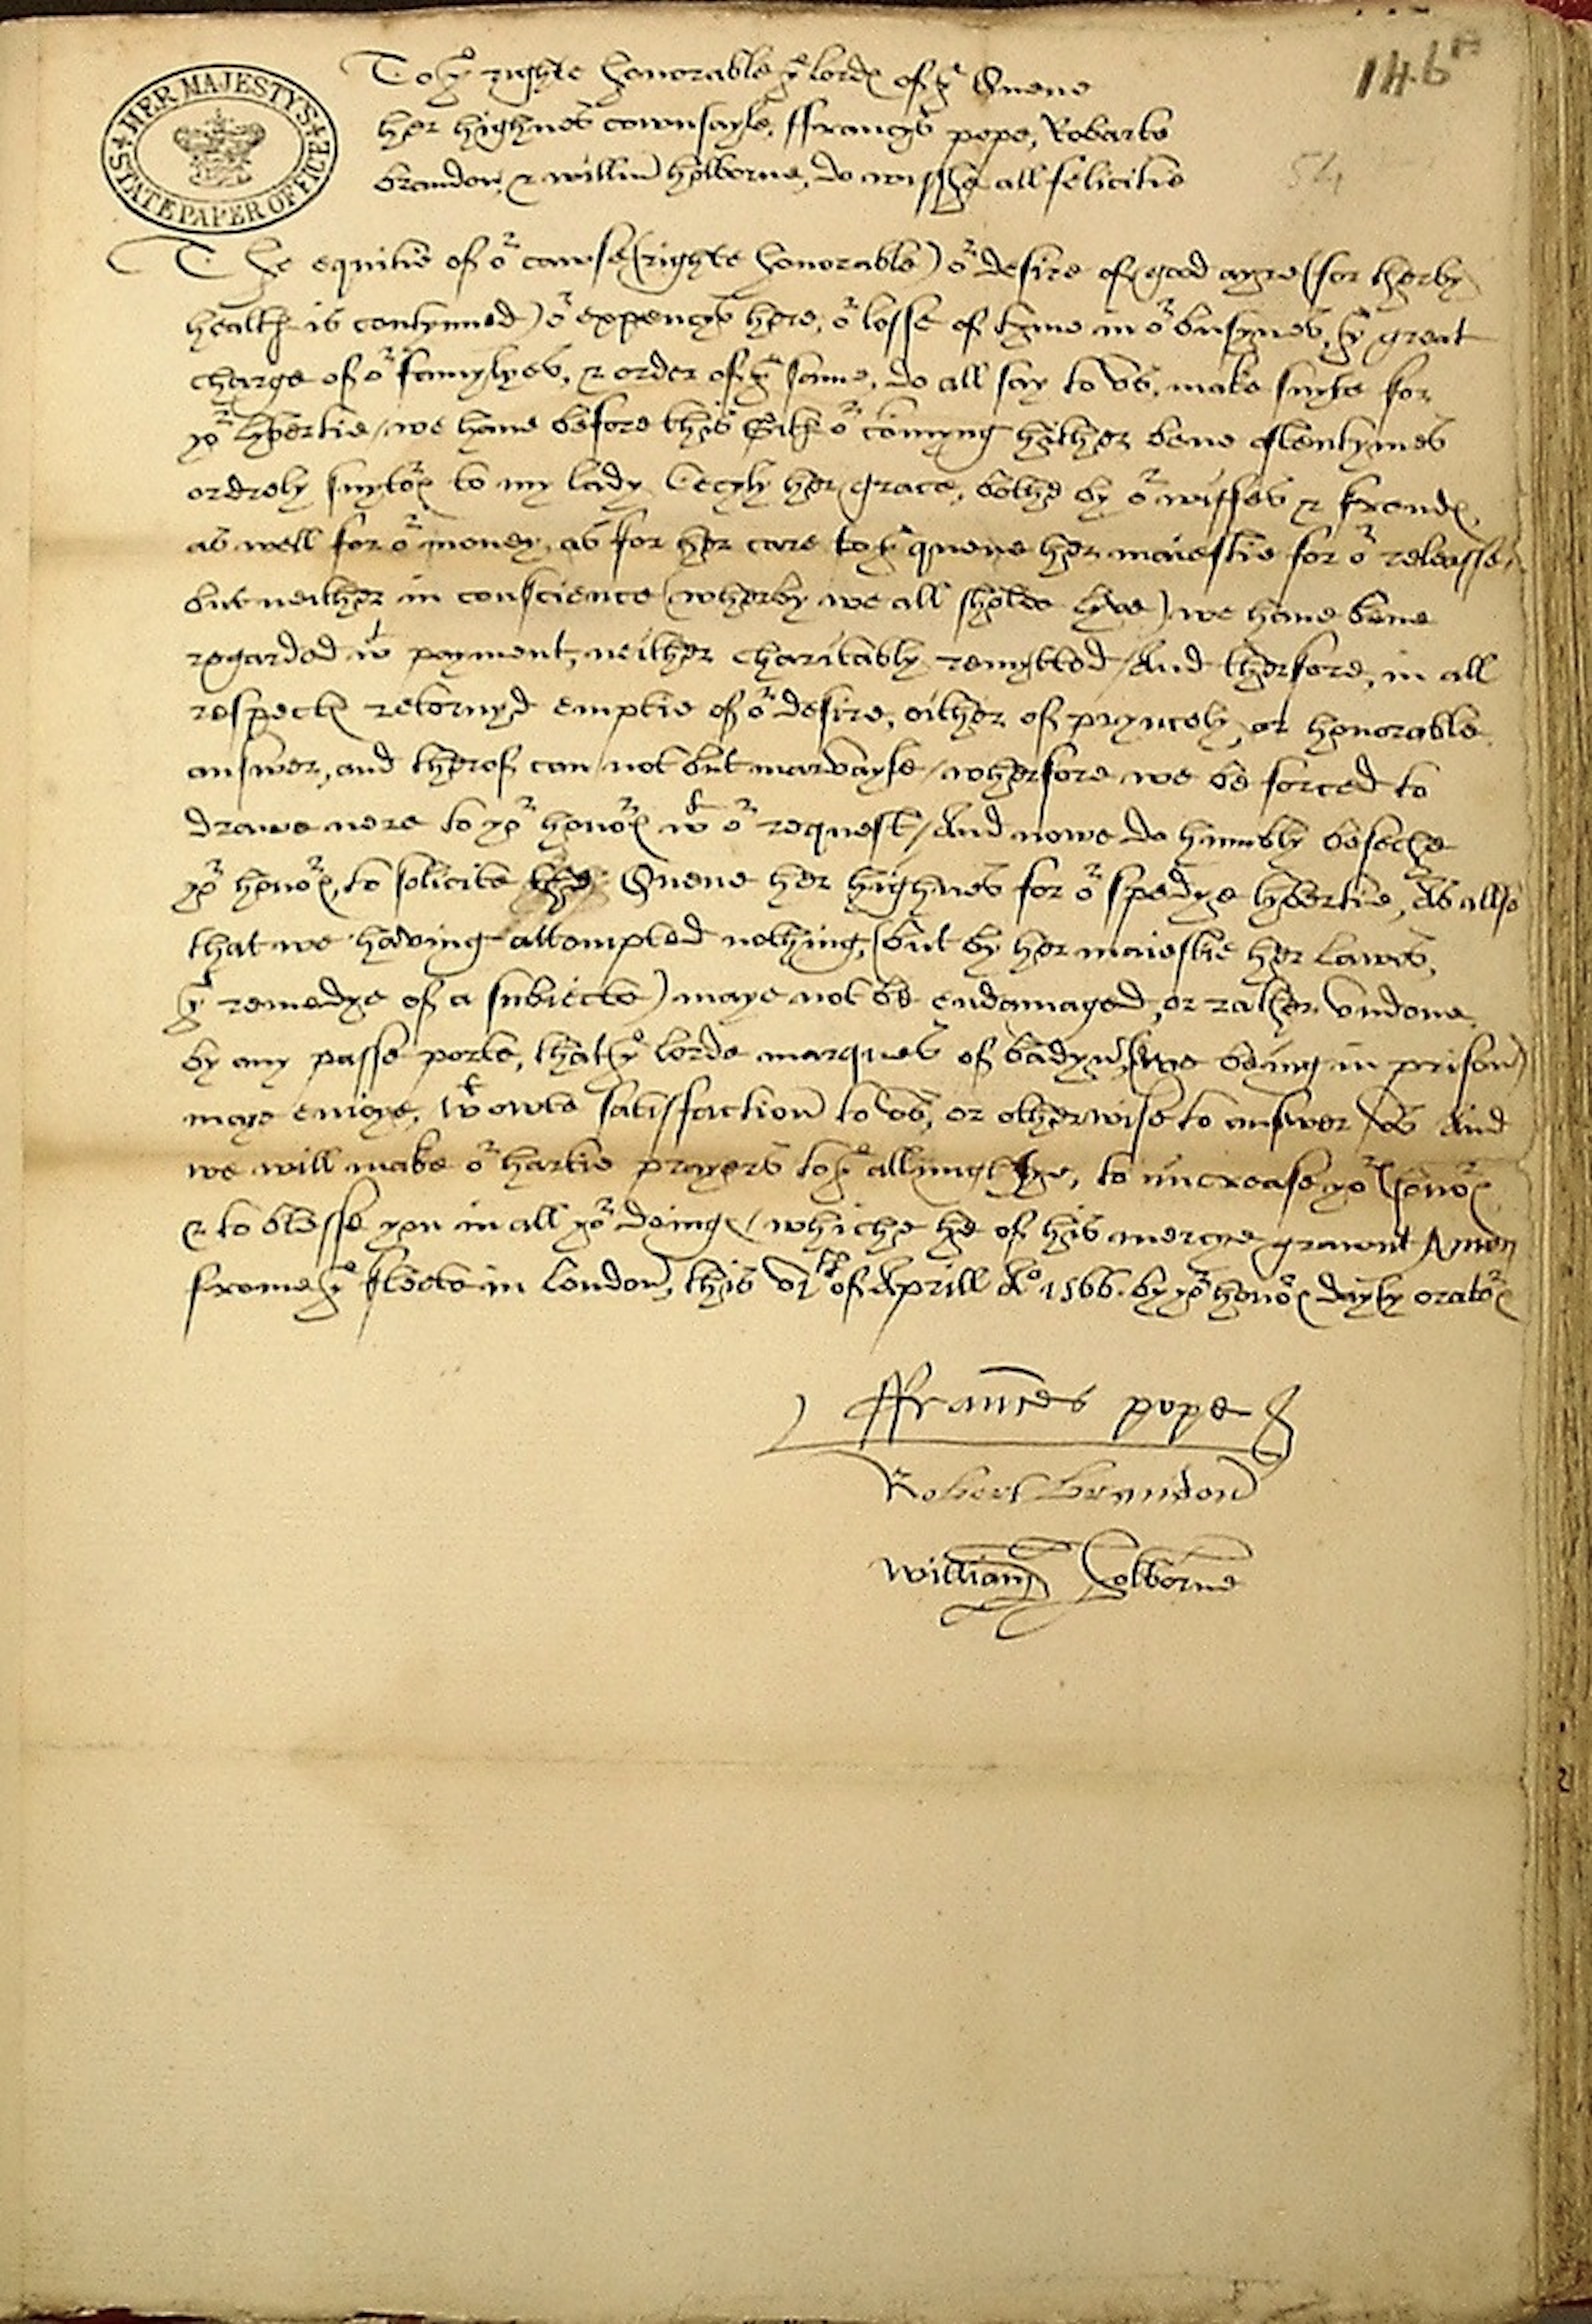 146
54
HER MAJESTY'S STATE PAPER OFFICE
To yᵉ righte honorable yᵉ lordes of yᵉ Quene
her highnes cownsayle, ffrancys pope, Robarte
brandon, & willm̄ holborne, do wisshe all felicitie
The equitie of oʳ cawse (righte honorable) oʳ desire of good ayre (for therby
health is contynued) oʳ expencys here, oʳ losse of tyme in oʳ busynes, yᵉ great
charge of oʳ famylyes, & order of yᵉ same, do all say to vs, make sute for
yoʳ lybertie / we haue before this & sith oʳ comyng hither bene oftentymes
ordrely suytoʳs to my lady Cecyly her grace, bothe by oʳ wiffes & frendes,
as well for oʳ money, as for her care to yᵉ quene her maiestie for oʳ releasse,
but neither in conscience (wherby we all sholde lyve) we haue bene
regarded wᵗ payment, neither charitably remytted / And therfore, in all
respectes retornyd emptie of oʳ desire, either of pryncely, or honorable
answer, and therof can not but marvayle / wherfore we be forced to
drawe nere to yoʳ honoʳs wᵗ oʳ request / And nowe do humbly beseche
yoʳ honoʳs, to solicite the Quene her highnes for oʳ spedye lybertie, As allso
that we having attempted nothing, (but by her maiestie her lawes,
yᵉ remedye of a subiecte) maye not be endamaged, or rather vndone
by any passe porte, that yᵉ lorde marques of badyn, (we being in prison)
maye enioye, wᵗowte satisfaction to vs, or otherwise to answer vs And
we will make oʳ hartie prayers to yᵉ allmightye, to increase yoʳ honoʳs
& to blesse you in all yoʳ doinges / whiche he of his mercye graunt Amen
frome yᵉ fleete in london, this vjᵗʰ of Aprill Aº 1566. by yoʳ honoʳs dayly oratoʳs
ffraunces pope
Robert brandon
william holborne